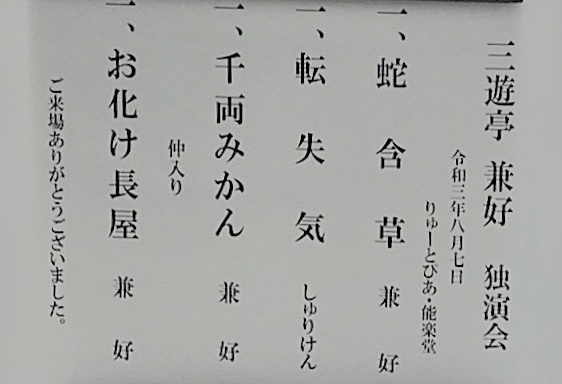 三遊亭 兼好 独演会
令和三年八月七日
りゅーとぴあ・能楽堂
一、蛇含草 兼好
一、転失気 しゅりけん
一、千両みかん 兼好
仲入り
一、お化け長屋 兼好
ご来場ありがとうございました。